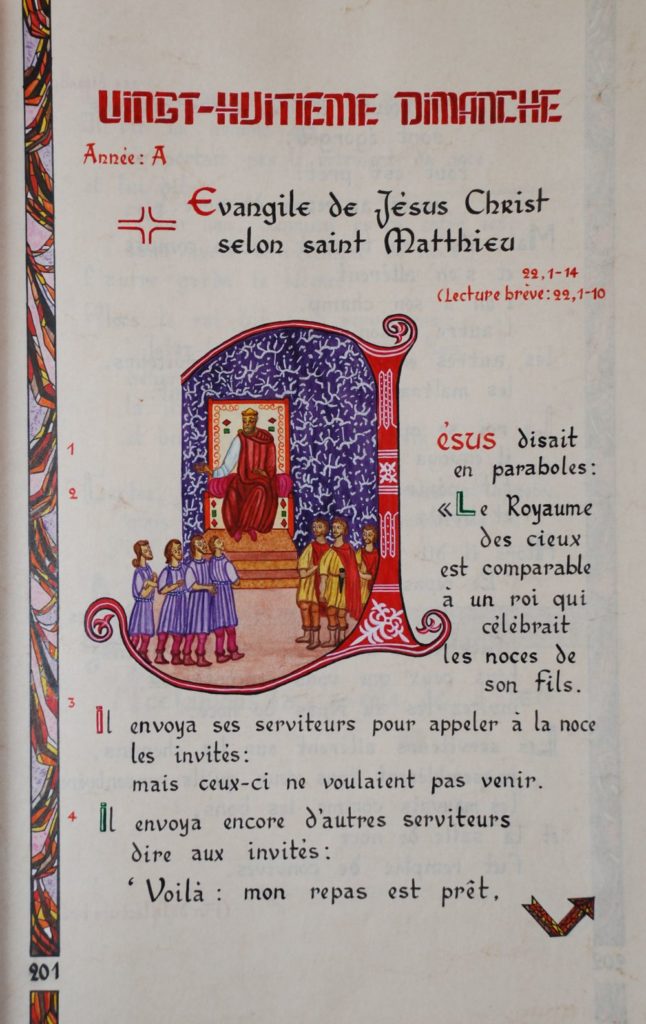 VINGT-HUITIEME DIMANCHE
Année: A
Evangile de Jésus Christ
selon saint Matthieu
22,1-14
(Lecture brève: 22,1-10
1
Jésus disait
en paraboles:
2
«Le Royaume
des cieux
est comparable
à un roi qui
célébrait
les noces de
son fils.
3
Il envoya ses serviteurs pour appeler à la noce
les invités:
mais ceux-ci ne voulaient pas venir.
4
Il envoya encore d'autres serviteurs
dire aux invités:
‘Voilà: mon repas est prêt,
201